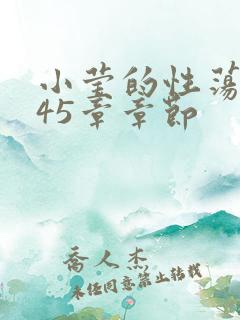 小莹的性荡
45章章节
乔人杰
未经同意禁止转载